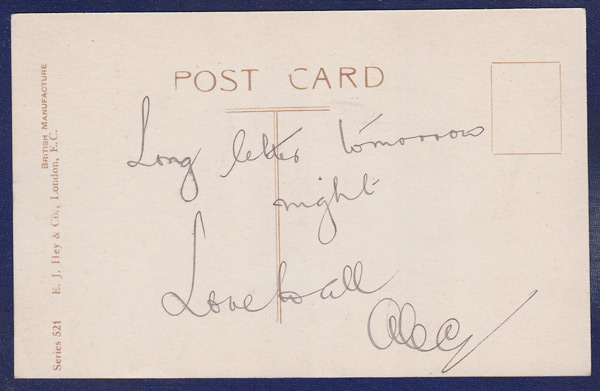 POST CARD
Long letter tomorrow
night
Love to all
Alec
BRITISH MANUFACTURE
Series 521 E. J. Hey & Co., London, E.C.